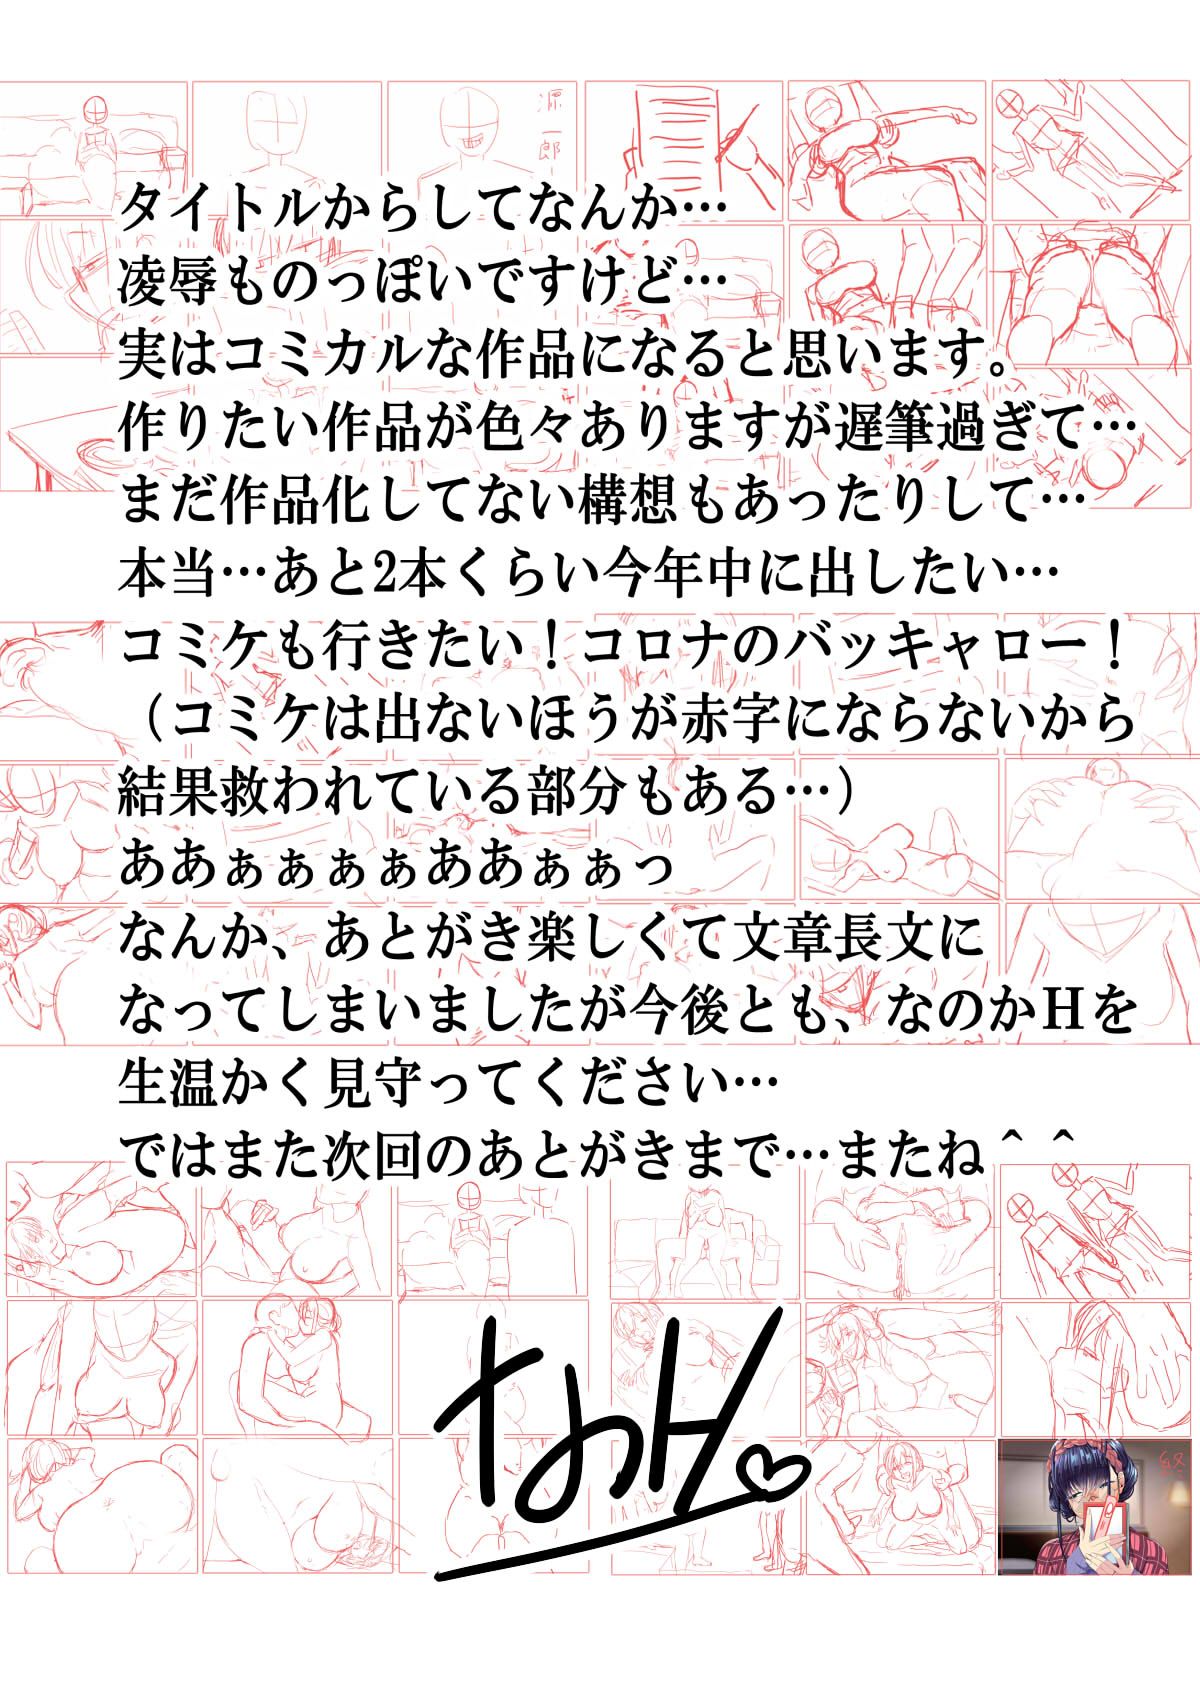 源一郎
タイトルからしてなんか…
凌辱ものっぽいですけど…
実はコミカルな作品になると思います。
作りたい作品が色々ありますが遅筆過ぎて…
まだ作品化してない構想もあったりして…
本当…あと2本くらい今年中に出したい…
コミケも行きたい！コロナのバッキャロー！
（コミケは出ないほうが赤字にならないから
結果救われている部分もある…）
ああぁぁぁぁああぁぁっ
なんか、あとがき楽しくて文章長文に
なってしまいましたが今後とも、なのかHを
生温かく見守ってください…
ではまた次回のあとがきまで…またね＾＾